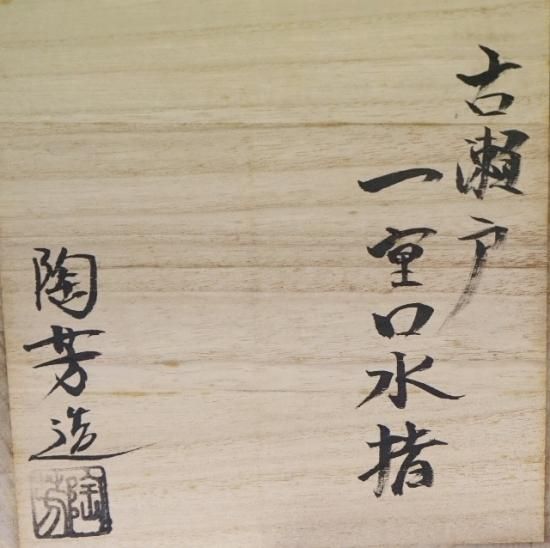 古瀬戸
一重口水指
陶芳造
陶芳